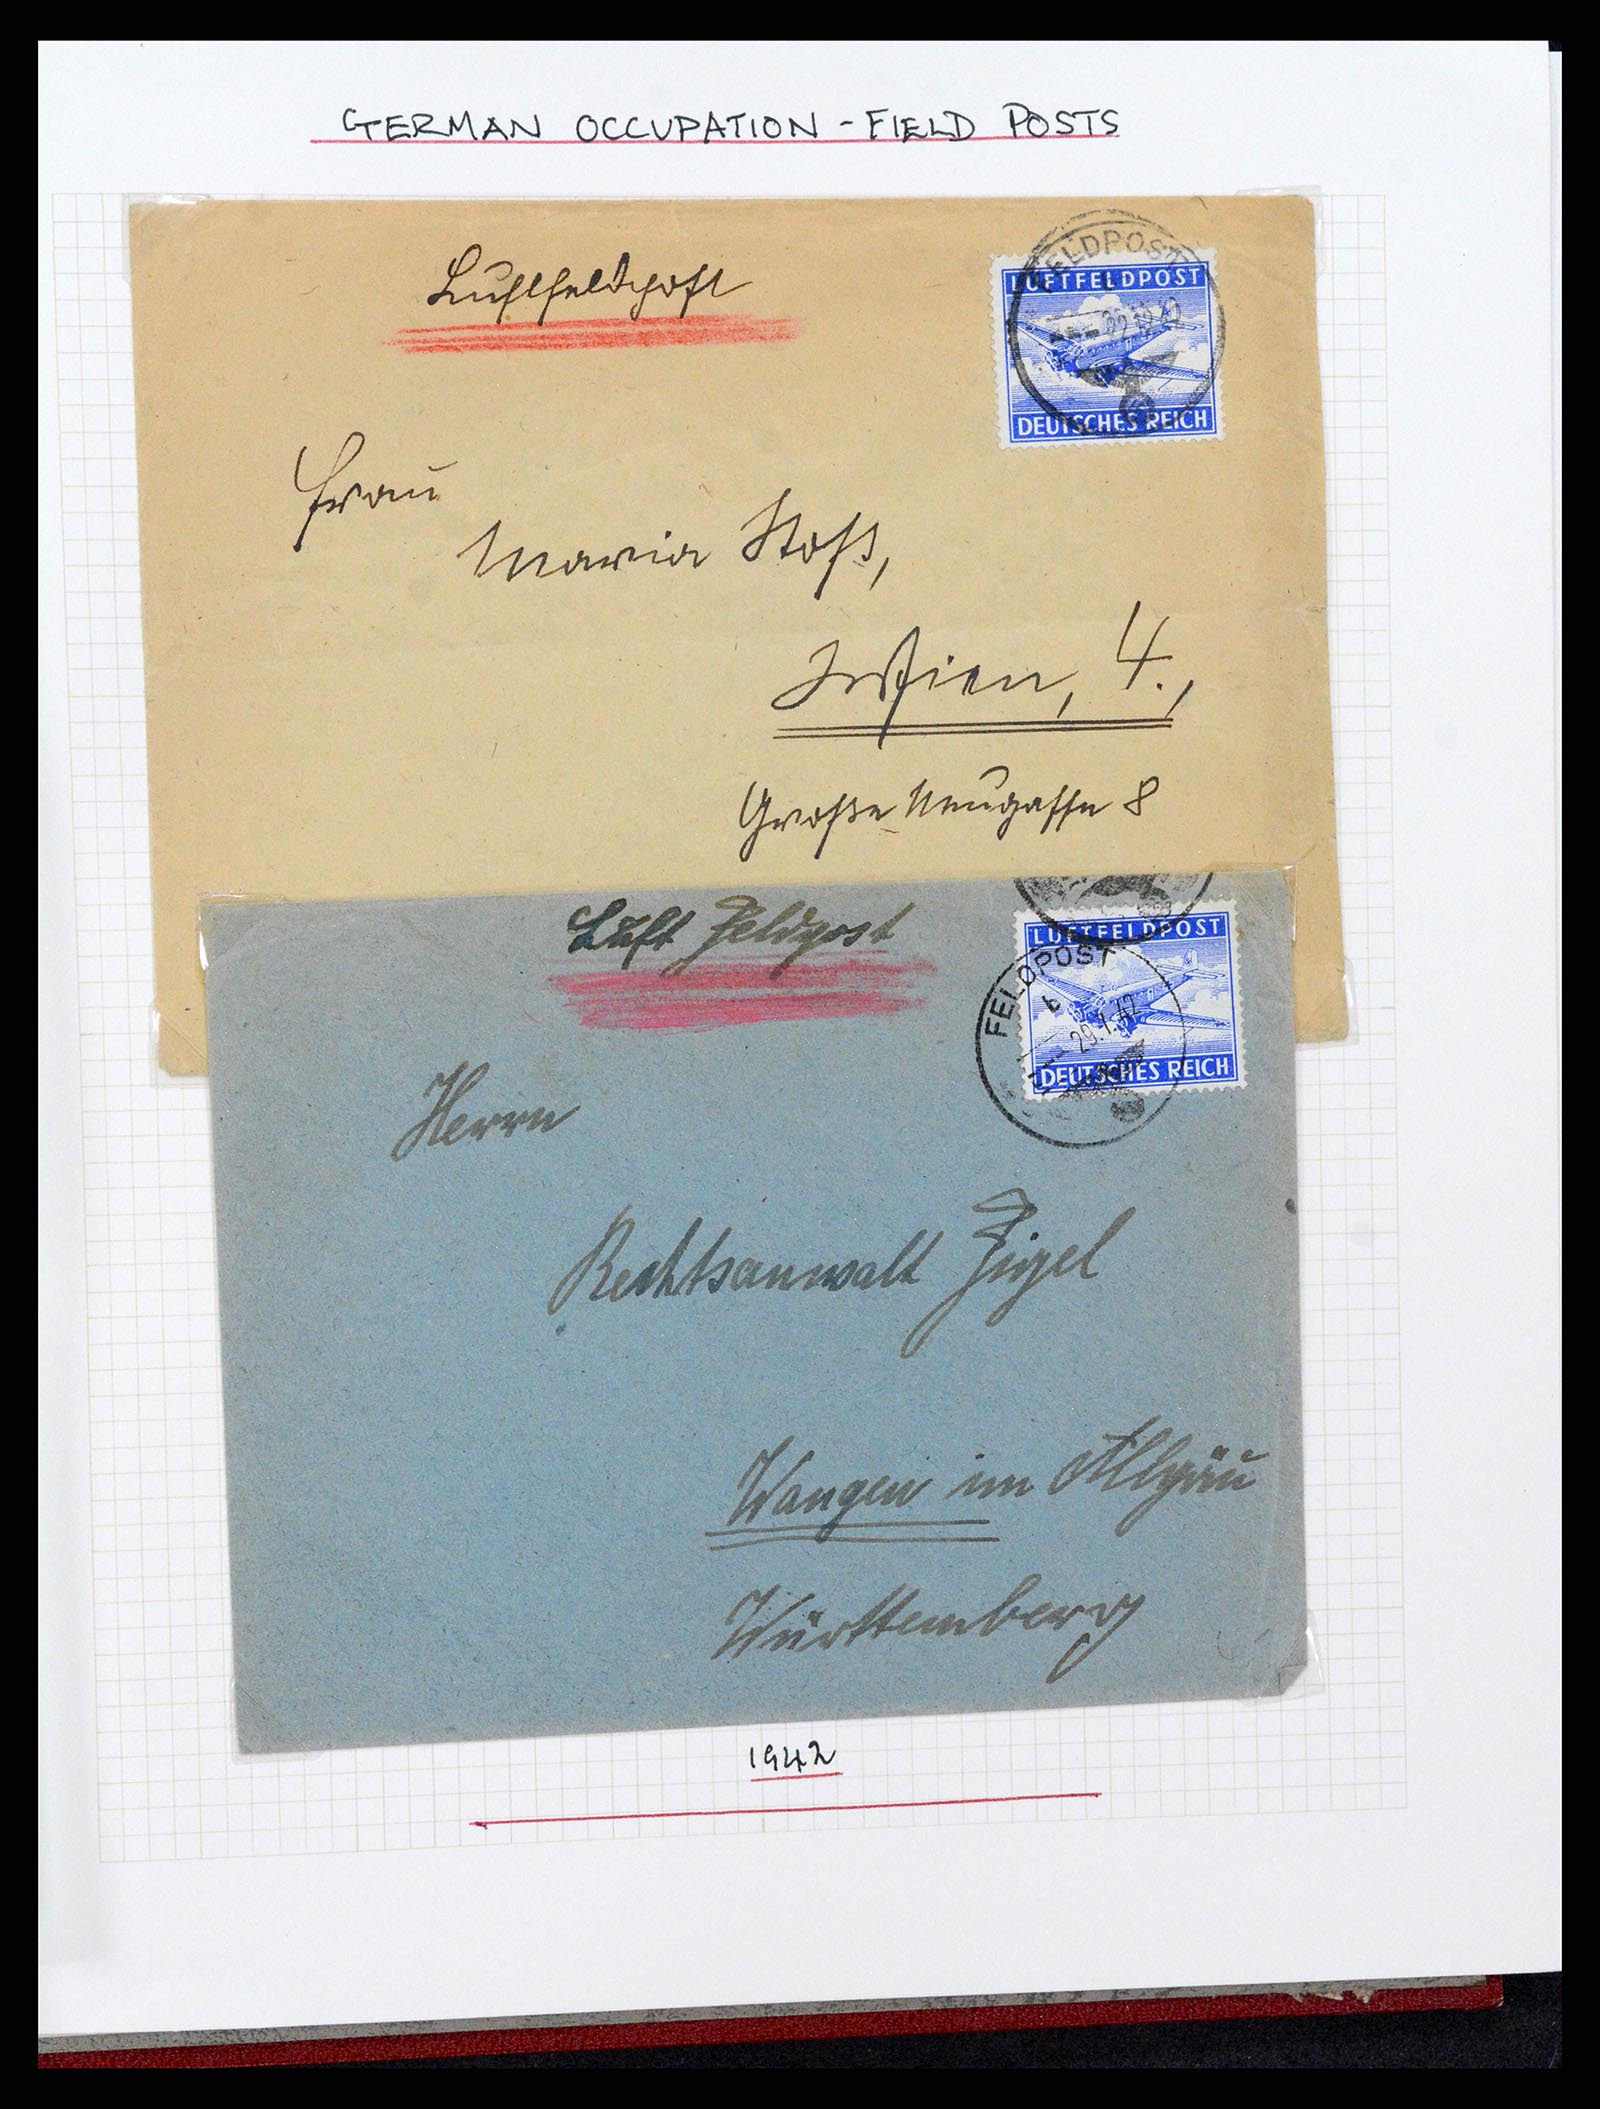 GERMAN OCCUPATION - FIELD POSTS
Luftfeldpost
FELDPOST
22.12.42
LUFTFELDPOST
DEUTSCHES REICH
Frau
Maria Stoß,
Wien, 4.,
Große Neugasse 8
Luft Feldpost
LUFTFELDPOST
FELDPOST
b
29.1.42
DEUTSCHES REICH
Herrn
Rechtsanwalt Zigel
Wangen im Allgäu
Württemberg
1942